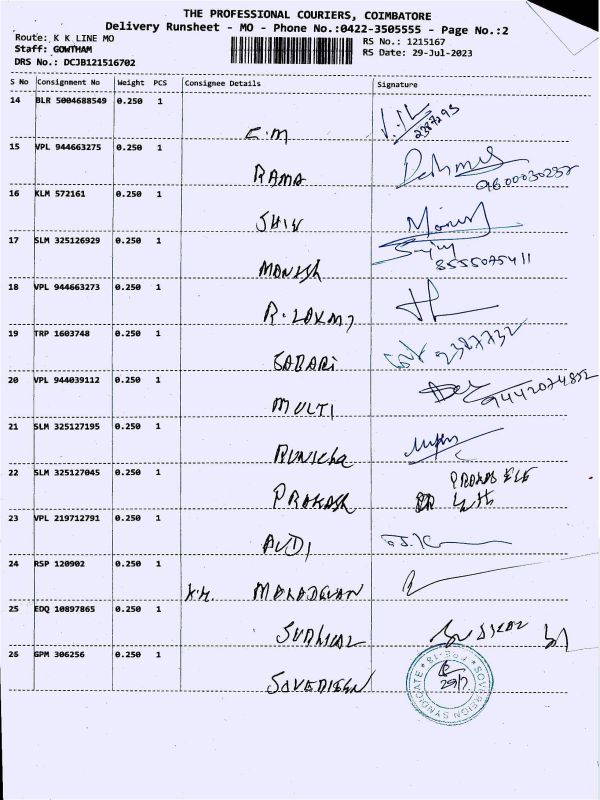 THE PROFESSIONAL COURIERS, COIMBATORE
Delivery Runsheet - MO - Phone No.:0422-3505555 - Page No.:2
Route: K K LINE MO
RS No.: 1215167
Staff: GOWTHAM
RS Date: 29-Jul-2023
DRS No.: DCJB121516702
S No Consignment No Weight PCS Consignee Details Signature
14 BLR 5004688549 0.250 1
E.M
2387293
15 VPL 944663275 0.250 1
RAMA
9600030232
16 KLM 572161 0.250 1
SHIV
17 SLM 325126929 0.250 1
MANISH
8555075411
18 VPL 944663273 0.250 1
R. LAXMI
19 TRP 1603748 0.250 1
SABARI
2387732
20 VPL 944039112 0.250 1
MULTI
9442074852
21 SLM 325127195 0.250 1
RUNICHA
22 SLM 325127045 0.250 1
PRAKASH
23 VPL 219712791 0.250 1
AUDI
24 RSP 120902 0.250 1
K.M.
25 EDQ 10897865 0.250 1
26 GPM 306256 0.250 1
SOVEREIGN SYNDICATE
29/7